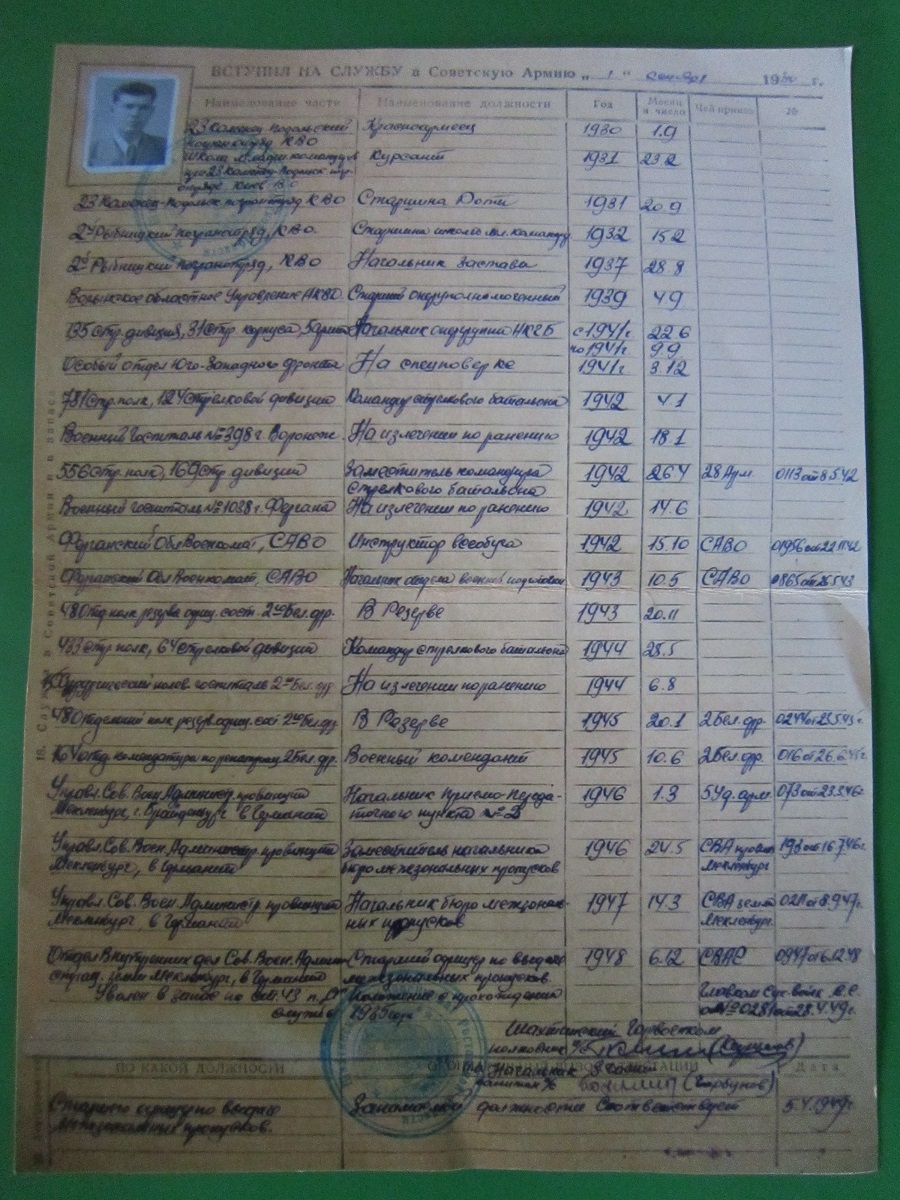 ВСТУПИЛ НА СЛУЖБУ в Советскую Армию „ 1 " сентября 1930 г.
Наименование части Наименование должности Год Месяц и число Чей приказ №
23 Каменец-Подольский погранотряд КВО Красноармеец 1930 1.9
Школа младш. командиров при 23 Каменец-Подольск. погранотряде, Киев. ВО Курсант 1931 23 2
23 Каменец-Подольск погранотряд КВО Старшина 1931 20.9
2й Рыбницкий погранотряд, КВО. Старшина школы мл. команд. 1932 15.2
2й Рыбницкий погранотряд, КВО Начальник заставы 1937 28.8
Волынское областное Управление НКВД Старший оперуполномоченный 1939 4 9
135 стр. дивизия, 31 стр. корпуса, 5 армии Начальник опергруппы НКГБ с 1941г 22 6
по 1941г 9.9
Особый отдел Юго-Западного фронта На спецповерке 1941г 3.12
781 стр. полк, 124 стрелковой дивизии Командир стрелкового батальона 1942 4.1
Военный госпиталь № 398 г. Воронеж. На излечении по ранению 1942 18.1
556 стр. полк, 169 стр дивизии Заместитель командира стрелкового батальона 1942 26.4 28 Арм. 0113 от 8.5.42
Военный госпиталь № 1038 г. Фергана На излечении по ранению 1942 14.6
Ферганский Обл Военкомат, САВО Инструктор всеобуча 1942 15.10 САВО 01956 от 22.11.42
Ферганский Обл Военкомат, САВО Начальник отдела военной подготовки 1943 10.5 САВО
48 Отд. полк резерва офиц. сост. 2го Бел. фр. В Резерве 1943 20.11
433 стр. полк, 64 стрелковой дивизии Командир стрелкового батальона 1944 28.5
полев. госпиталь 2го Бел. фр. На излечении по ранению 1944 6.8
48 Отдельный полк резерв. офиц. сост 2го Бел. фр. В Резерве 1945 20.1 2 Бел. фр. 0244 от 23.5.45 г.
отд. комендатура по репатриац. 2 Бел. фр. Военный комендант 1945 10.6 2 Бел. фр. 016 от 26.6.45г
Управл. Сов. Воен. Админист. провинции Мекленбург, г. в Германии Начальник приемо-передаточного пункта № 2 1946 1.3 5 Уд. арм. 073 от 23.3.46г
Управл. Сов. Воен. Админист. провинции Мекленбург, в Германии Заместитель начальника бюро межзональных пропусков 1946 24.5 СВА провин. Мекленбург 193 от 16.7.46г
Управл. Сов. Воен. Админист провинции Мекленбург в Германии Начальник бюро межзональных пропусков 1947 14.3 СВА земли Мекленбург. 0211 от 8.9.47г.
Отдел Внутренних дел Сов. Воен. Администрац. земли Мекленбург, в Германии Старший офицер по выдаче межзональных пропусков. 1948 6.12 СВАГ 0947 от 6.12.48
Уволен в запас по ст. 43 п. Положение о прохождении службы Главком Сух. войск В.С. № 0281 от 28.4.49г.
Шахтинский Горвоенком
полковник
Начальник 2 части
капитан (Горбунов)
ПО КАКОЙ ДОЛЖНОСТИ АТТЕСТАЦИИ Дата
Старшего офицера по выдаче межзональных пропусков. Занимаемой должности Соответствует 5.4.1949г
18. Служба в Советской Армии и в запасе